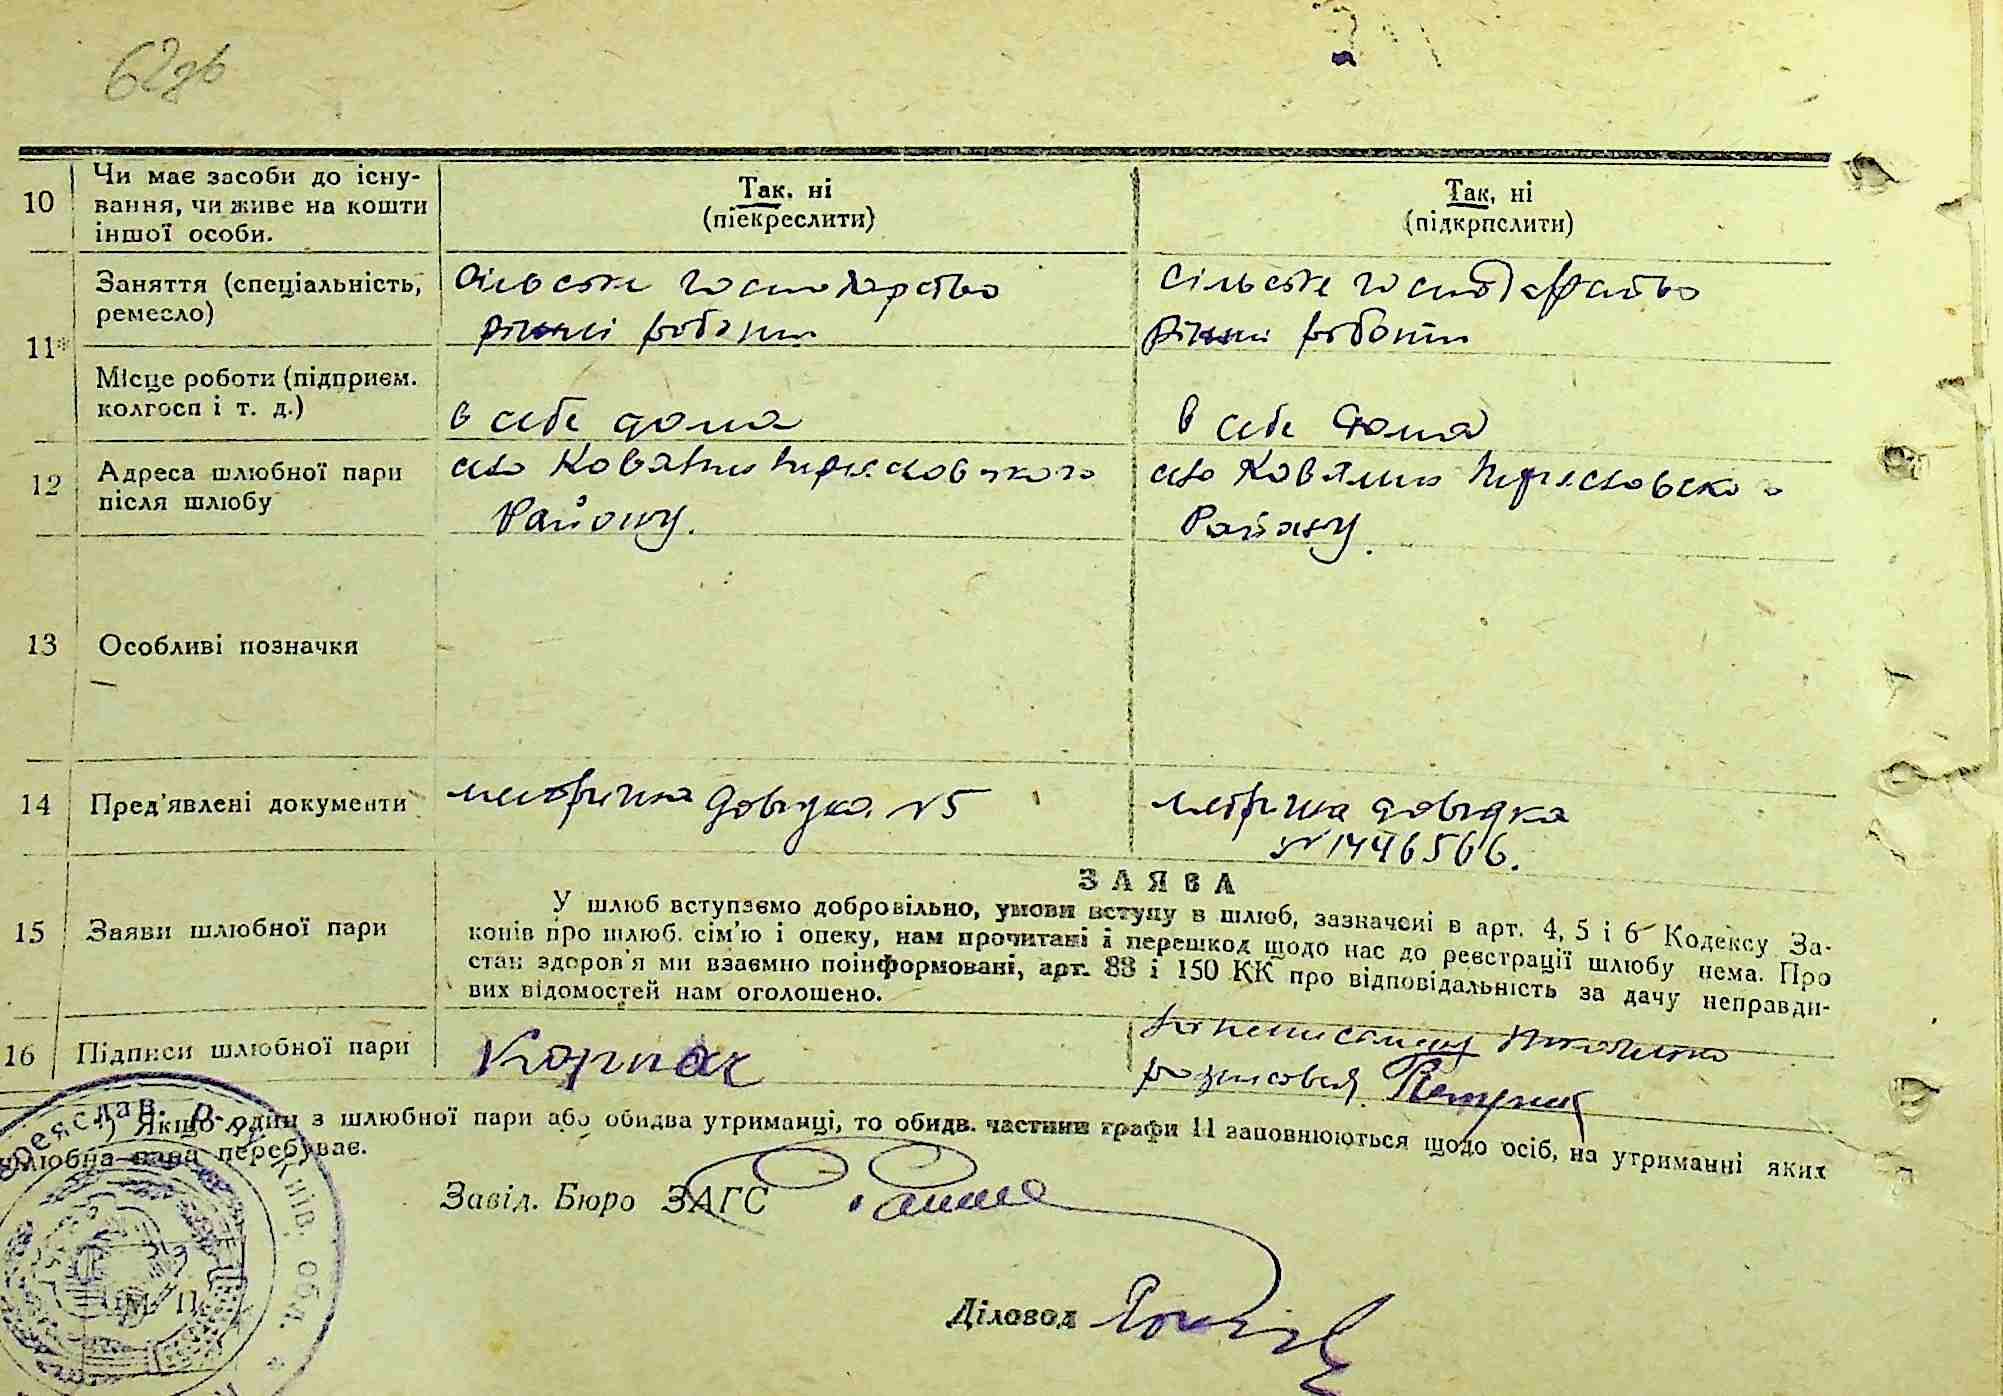 62зв
10
Чи має засоби до існу-
вання, чи живе на кошти
іншої особи.
Так, ні
(піекреслити)
Так, ні
(підкрпслити)
11*
Заняття (спеціальність,
ремесло)
сільське господарство
різні роботи
сільське господарство
різні роботи
Місце роботи (підприєм.
колгосп і т. д.)
в себе дома
в себе дома
12
Адреса шлюбної пари
після шлюбу
село Ковалин Переяславського
Району.
село Ковалин
Району.
13
Особливі позначкя
14
Пред'явлені документи
метрична довідка №5
метрична довідка
№1446566.
15
Заяви шлюбної пари
ЗАЯВА
У шлюб вступаємо добровільно, умови вступу в шлюб, зазначені в арт. 4, 5 і 6 Кодексу За-
конів про шлюб. сім'ю і опеку, нам прочитані і перешкод щодо нас до реєстрації шлюбу нема. Про
стан здоров'я ми взаємно поінформовані, арт. 88 і 150 КК про відповідальність за дачу неправди-
вих відомостей нам оголошено.
16
Підписи шлюбної пари
Корпач
за неписьменну
розписався
*) Якщо один з шлюбної пари або обидва утриманці, то обидв. частини графи 11 заповнюються щодо осіб, на утриманні яких
шлюбна пара перебуває.
Завід. Бюро ЗАГС
Діловод
Київ. обл.
М. П.